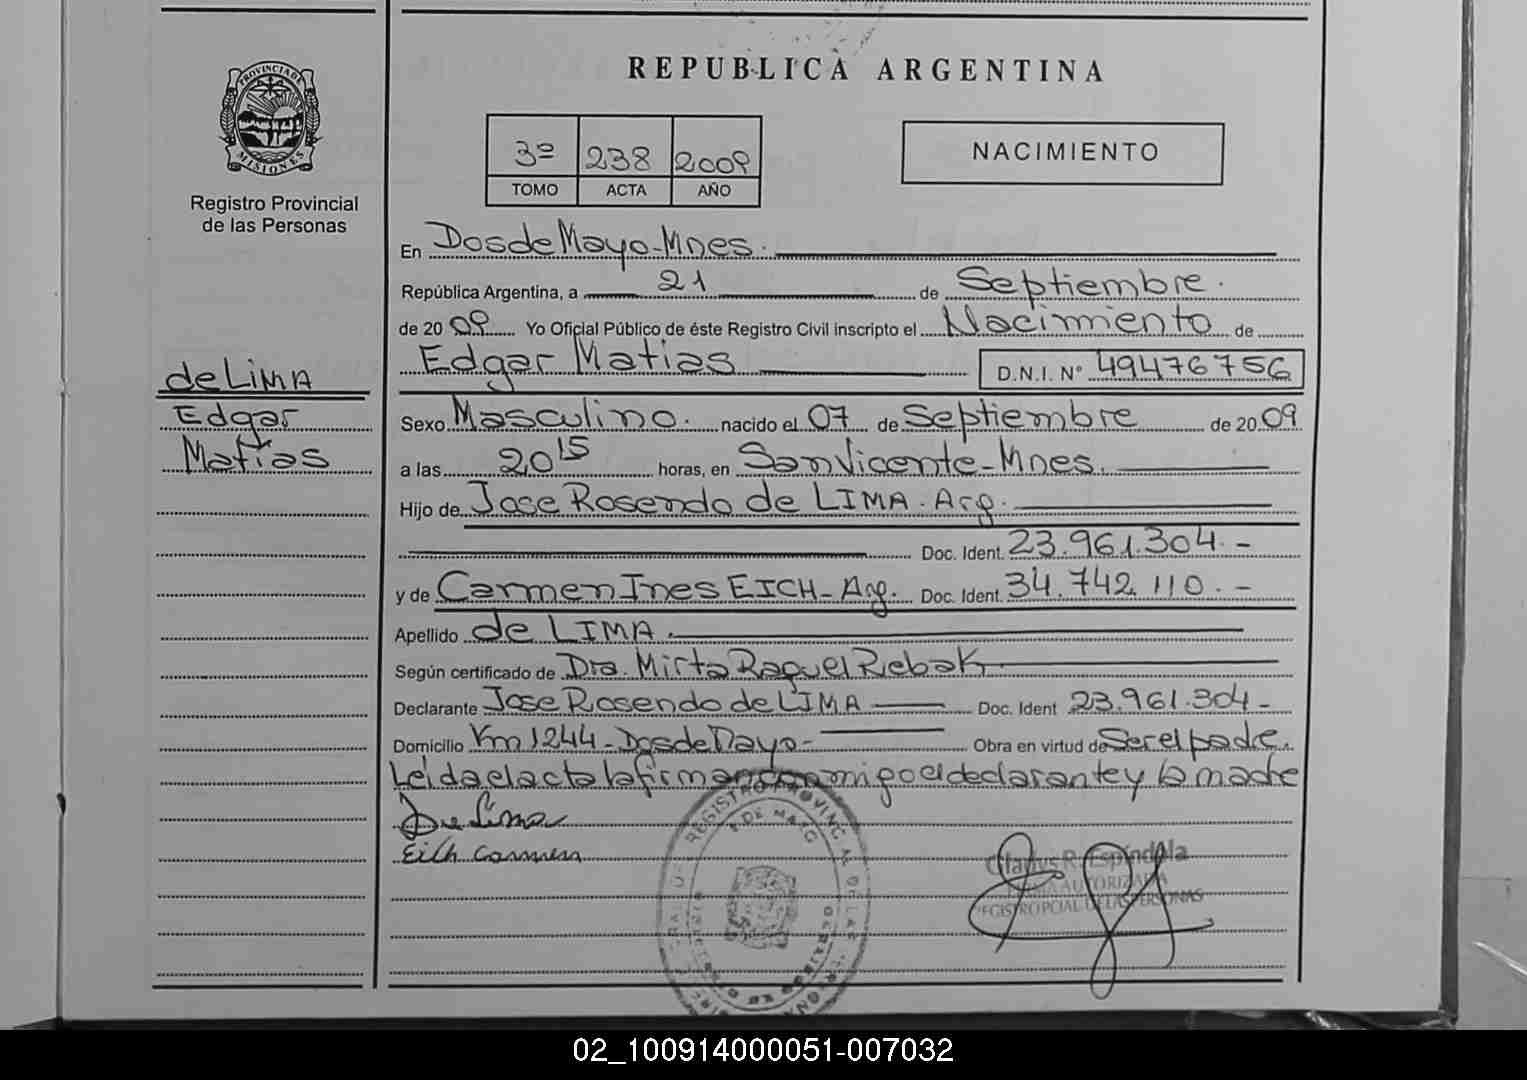 PROVINCIA DE
MISIONES
Registro Provincial
de las Personas
de LIMA
Edgar
Matías
REPUBLICA ARGENTINA
3º 238 2009
TOMO ACTA AÑO
NACIMIENTO
En Dos de Mayo - Mnes.
República Argentina, a 21 de Septiembre.
de 20 09 Yo Oficial Público de éste Registro Civil inscripto el Nacimiento de
Edgar Matias D.N.I. N° 49476756
Sexo Masculino. nacido el 07 de Septiembre de 20 09
a las 20 15 horas, en San Vicente - Mnes.
Hijo de Jose Rosendo de LIMA. Arg.
Doc. Ident. 23.961.304. -
y de Carmen Ines EICH - Arg. Doc. Ident. 34.742.110. -
Apellido de LIMA.
Según certificado de Dra. Mirta Raquel Rebak
Declarante Jose Rosendo de LIMA Doc. Ident 23.961.304 -
Domicilio Km 1244 - Dos de Mayo - Obra en virtud de Ser el padre.
Leída el acta la firman conmigo el declarante y la madre
De Lima
Eich Carmen
Gladys R. Espíndola
AUTORIZADA
REGISTRO PCIAL DE LAS PERSONAS
02_100914000051-007032